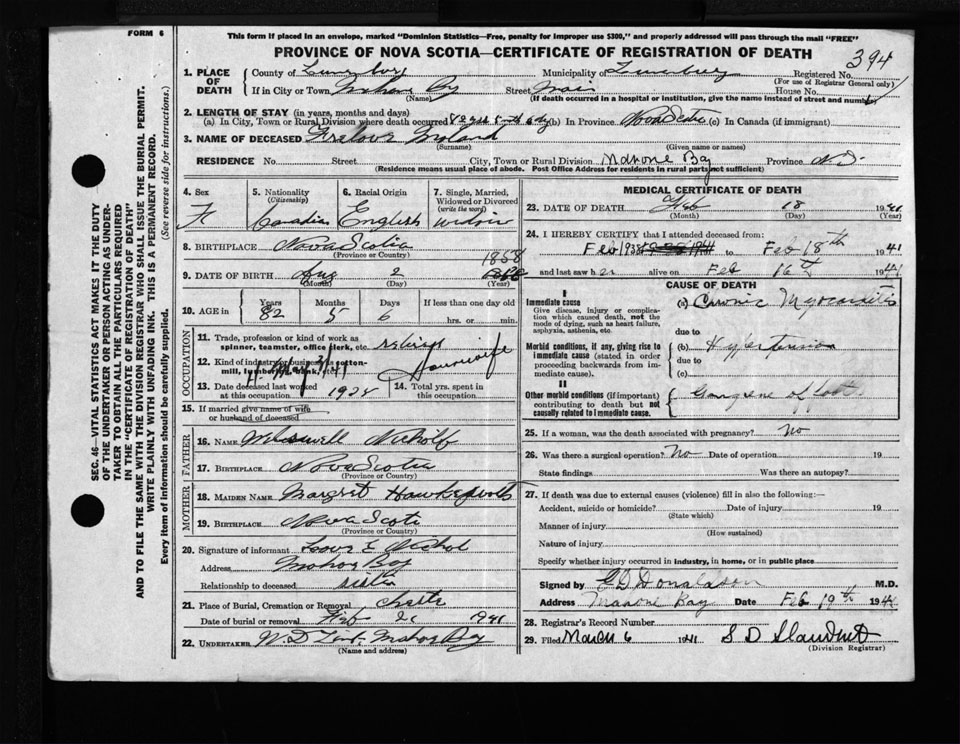 FORM 6
This form if placed in an envelope, marked "Dominion Statistics—Free, penalty for improper use $300," and properly addressed will pass through the mail "FREE"
PROVINCE OF NOVA SCOTIA—CERTIFICATE OF REGISTRATION OF DEATH
394
1. PLACE OF DEATH
County of Lunenburg Municipality of Lunenburg Registered No.
(For use of Registrar General only)
If in City or Town Mahone Bay Street Main House No.
(Name) (If death occurred in a hospital or institution, give the name instead of street and number)
2. LENGTH OF STAY (in years, months and days)
(a) In City, Town or Rural Division where death occurred (b) In Province Nova Scotia (c) In Canada (if immigrant)
3. NAME OF DECEASED
(Surname) (Given name or names)
RESIDENCE No. Street City, Town or Rural Division Mahone Bay Province N.S.
(Residence means usual place of abode. Post Office Address for residents in rural parts not sufficient)
4. Sex 5. Nationality (Citizenship) 6. Racial Origin 7. Single, Married, Widowed or Divorced (write the word)
Fe Canadian English Widow
8. BIRTHPLACE Nova Scotia
(Province or Country)
1858
9. DATE OF BIRTH Aug 2
(Month) (Day) (Year)
10. AGE in Years Months Days If less than one day
82 5 6 hrs. or min.
OCCUPATION
11. Trade, profession or kind of work as spinner, teamster, office clerk, etc.
12. Kind of industry or business, as cotton-mill, lumbering, bank, etc. Housewife
13. Date deceased last worked at this occupation 1924 14. Total yrs. spent in this occupation
15. If married give name of wife or husband of deceased
FATHER
16. NAME
17. BIRTHPLACE Nova Scotia
(Province or Country)
MOTHER
18. MAIDEN NAME Margret
19. BIRTHPLACE Nova Scotia
(Province or Country)
20. Signature of informant
Address Mahone Bay
Relationship to deceased sister
21. Place of Burial, Cremation or Removal
Date of burial or removal Feb 1941
22. UNDERTAKER Mahone Bay
(Name and address)
MEDICAL CERTIFICATE OF DEATH
23. DATE OF DEATH Feb 18 1941
(Month) (Day) (Year)
24. I HEREBY CERTIFY that I attended deceased from:
Feb 1938 to Feb 18th 1941
and last saw her alive on Feb 1941
CAUSE OF DEATH
I
Immediate cause
Give disease, injury or complication which caused death, not the mode of dying, such as heart failure, asphyxia, asthenia, etc.
(a) Chronic Myocarditis
due to
Morbid conditions, if any, giving rise to immediate cause (stated in order proceeding backwards from immediate cause).
(b) Hypertension
due to
(c)
II
Other morbid conditions (if important) contributing to death but not causally related to immediate cause.
Gangrene of foot
25. If a woman, was the death associated with pregnancy? No
26. Was there a surgical operation? No Date of operation 19
State findings Was there an autopsy?
27. If death was due to external causes (violence) fill in also the following:—
Accident, suicide or homicide? Date of injury 19
(State which)
Manner of injury
(How sustained)
Nature of injury
Specify whether injury occurred in industry, in home, or in public place
Signed by Donaldson M.D.
Address Mahone Bay Date Feb 19th 1941
28. Registrar's Record Number
29. Filed March 6 1941
(Division Registrar)
SEC. 46—VITAL STATISTICS ACT MAKES IT THE DUTY
OF THE UNDERTAKER OR PERSON ACTING AS UNDER-
TAKER TO OBTAIN ALL THE PARTICULARS REQUIRED
IN THE "CERTIFICATE OF REGISTRATION OF DEATH"
AND TO FILE THE SAME WITH THE DIVISION REGISTRAR WHO SHALL ISSUE THE BURIAL PERMIT.
WRITE PLAINLY WITH UNFADING INK. THIS IS A PERMANENT RECORD.
Every item of information should be carefully supplied. (See reverse side for instructions.)